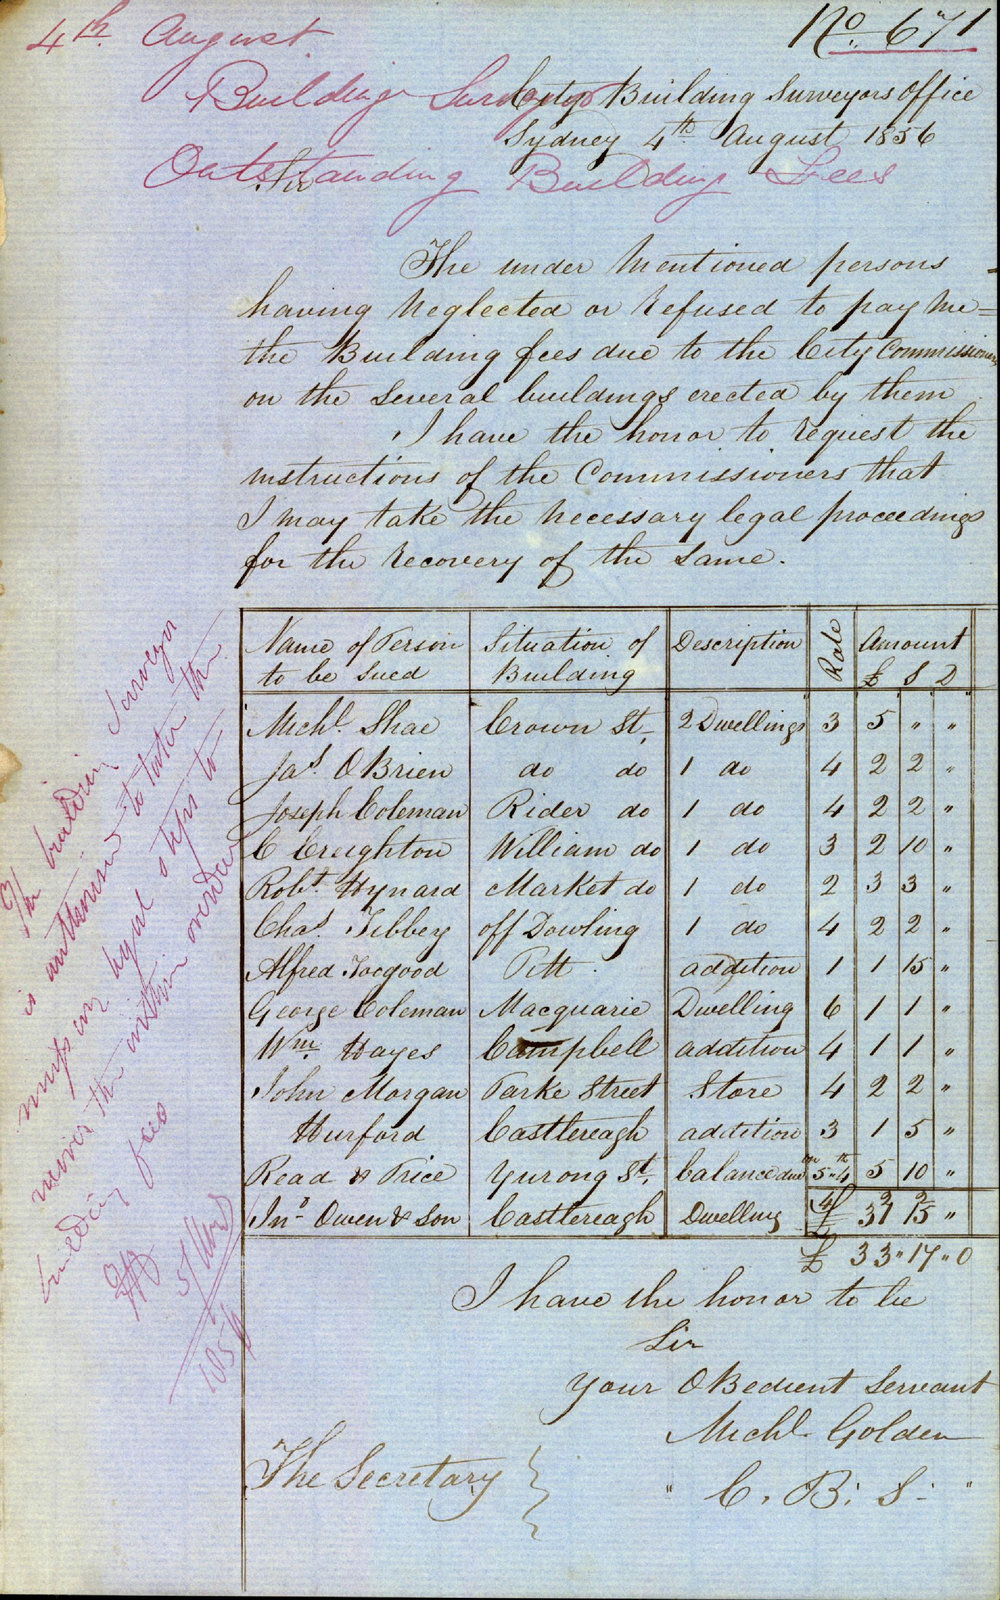 4th August
No. 671
Building Surveyor
City Building Surveyors Office
Sydney 4th August 1856
Outstanding Building Fees
Sir
The under Mentioned persons
having Neglected or Refused to pay Me
the Building fees due to the City Commissioners
on the several buildings erected by them
I have the honor to request the
instructions of the Commissioners that
I may take the necessary legal proceedings
for the recovery of the same.
Name of Person to be Sued | Situation of Building | Description | Rate | Amount £ S D
Michl. Shae | Crown St. | 2 Dwellings | 3 | 5 " "
Jas. O Brien | do do | 1 do | 4 | 2 2 "
Joseph Coleman | Rider do | 1 do | 4 | 2 2 "
C Creighton | William do | 1 do | 3 | 2 10 "
Robt. Hynard | Market do | 1 do | 2 | 3 3 "
Chas. Tibbey | off Dowling | 1 do | 4 | 2 2 "
Alfred Toogood | Pitt | addition | 1 | 1 15 "
George Coleman | Macquarie | Dwelling | 6 | 1 1 "
Wm. Hayes | Campbell | addition | 4 | 1 1 "
John Morgan | Parke Street | Store | 4 | 2 2 "
Hurford | Castlereagh | addition | 3 | 1 5 "
Read & Price | Yurong St. | balance due | 5 "4 | 5 10 "
Jno. Owen & Son | Castlereagh | Dwelling | 4 | 2 2
£ 31 15 "
£ 33 " 17 " 0
I have the honor to be
Sir
Your Obedient Servant
Michl. Golden
" C. B. S. "
The Secretary
The building Surveyor
is authorised to take the
necessary legal steps to
recover the within overdue
building fees
1856